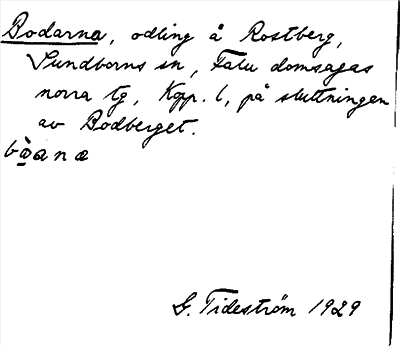 Bodarna, odling å Rostberg,
Sundborns sn, Falu domsagas
norra tg, Kopp. l, på sluttningen
av Bodberget.
bòanæ
G. Tideström 1929